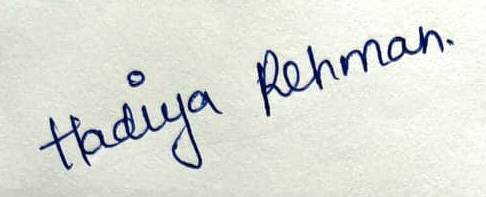 Hadiya Rehman.